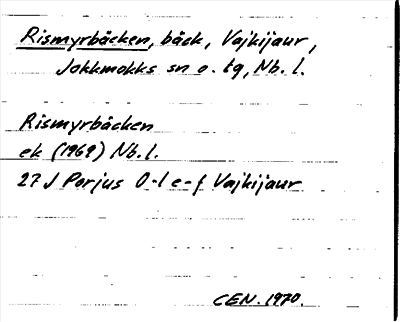 Rismyrbäcken, bäck, Vajkijaur,
Jokkmokks sn o. tg, Nb. l.
Rismyrbäcken
ek (1969) Nb. l.
27 J Porjus 0-1 e-f Vajkijaur
CEN. 1970.